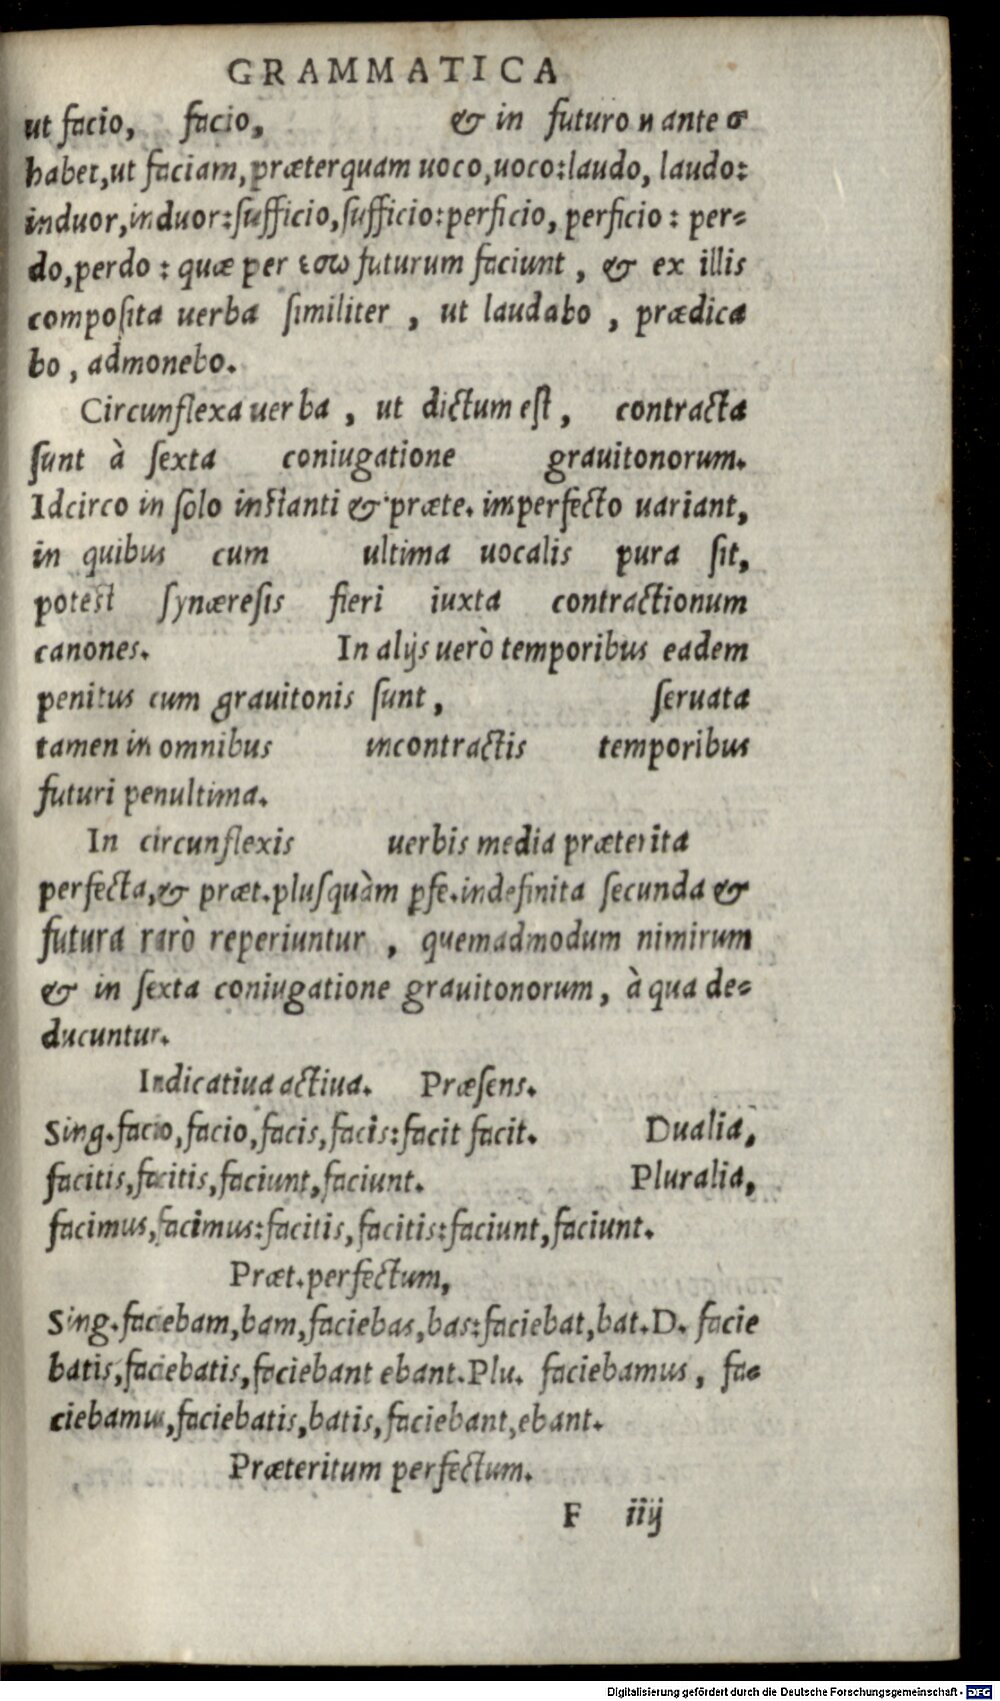 GRAMMATICA
ut facio, facio, & in futuro н ante σ
habet, ut faciam, præterquam uoco, uoco: laudo, laudo:
induor, induor: sufficio, sufficio: perficio, perficio: per-
do, perdo: quæ per εσω futurum faciunt, & ex illis
composita uerba similiter, ut laudabo, prædica
bo, admonebo.
Circunflexa uerba, ut dictum est, contracta
sunt à sexta coniugatione grauitonorum.
Idcirco in solo instanti & præte. imperfecto uariant,
in quibus cum ultima uocalis pura sit,
potest synæresis fieri iuxta contractionum
canones. In alijs uerò temporibus eadem
penitus cum grauitonis sunt, seruata
tamen in omnibus incontractis temporibus
futuri penultima.
In circunflexis uerbis media præterita
perfecta, & præt. plusquàm pfe. indefinita secunda &
futura rarò reperiuntur, quemadmodum nimirum
& in sexta coniugatione grauitonorum, à qua de-
ducuntur.
Indicatiua actiua. Præsens.
Sing. facio, facio, facis, facis: facit facit. Dualia,
facitis, facitis, faciunt, faciunt. Pluralia,
facimus, facimus: facitis, facitis: faciunt, faciunt.
Præt. perfectum,
Sing. faciebam, bam, faciebas, bas: faciebat, bat. D. facie
batis, faciebatis, faciebant ebant. Plu. faciebamus, fa-
ciebamus, faciebatis, batis, faciebant, ebant.
Præteritum perfectum.
F iiij
Digitalisierung gefördert durch die Deutsche Forschungsgemeinschaft - DFG